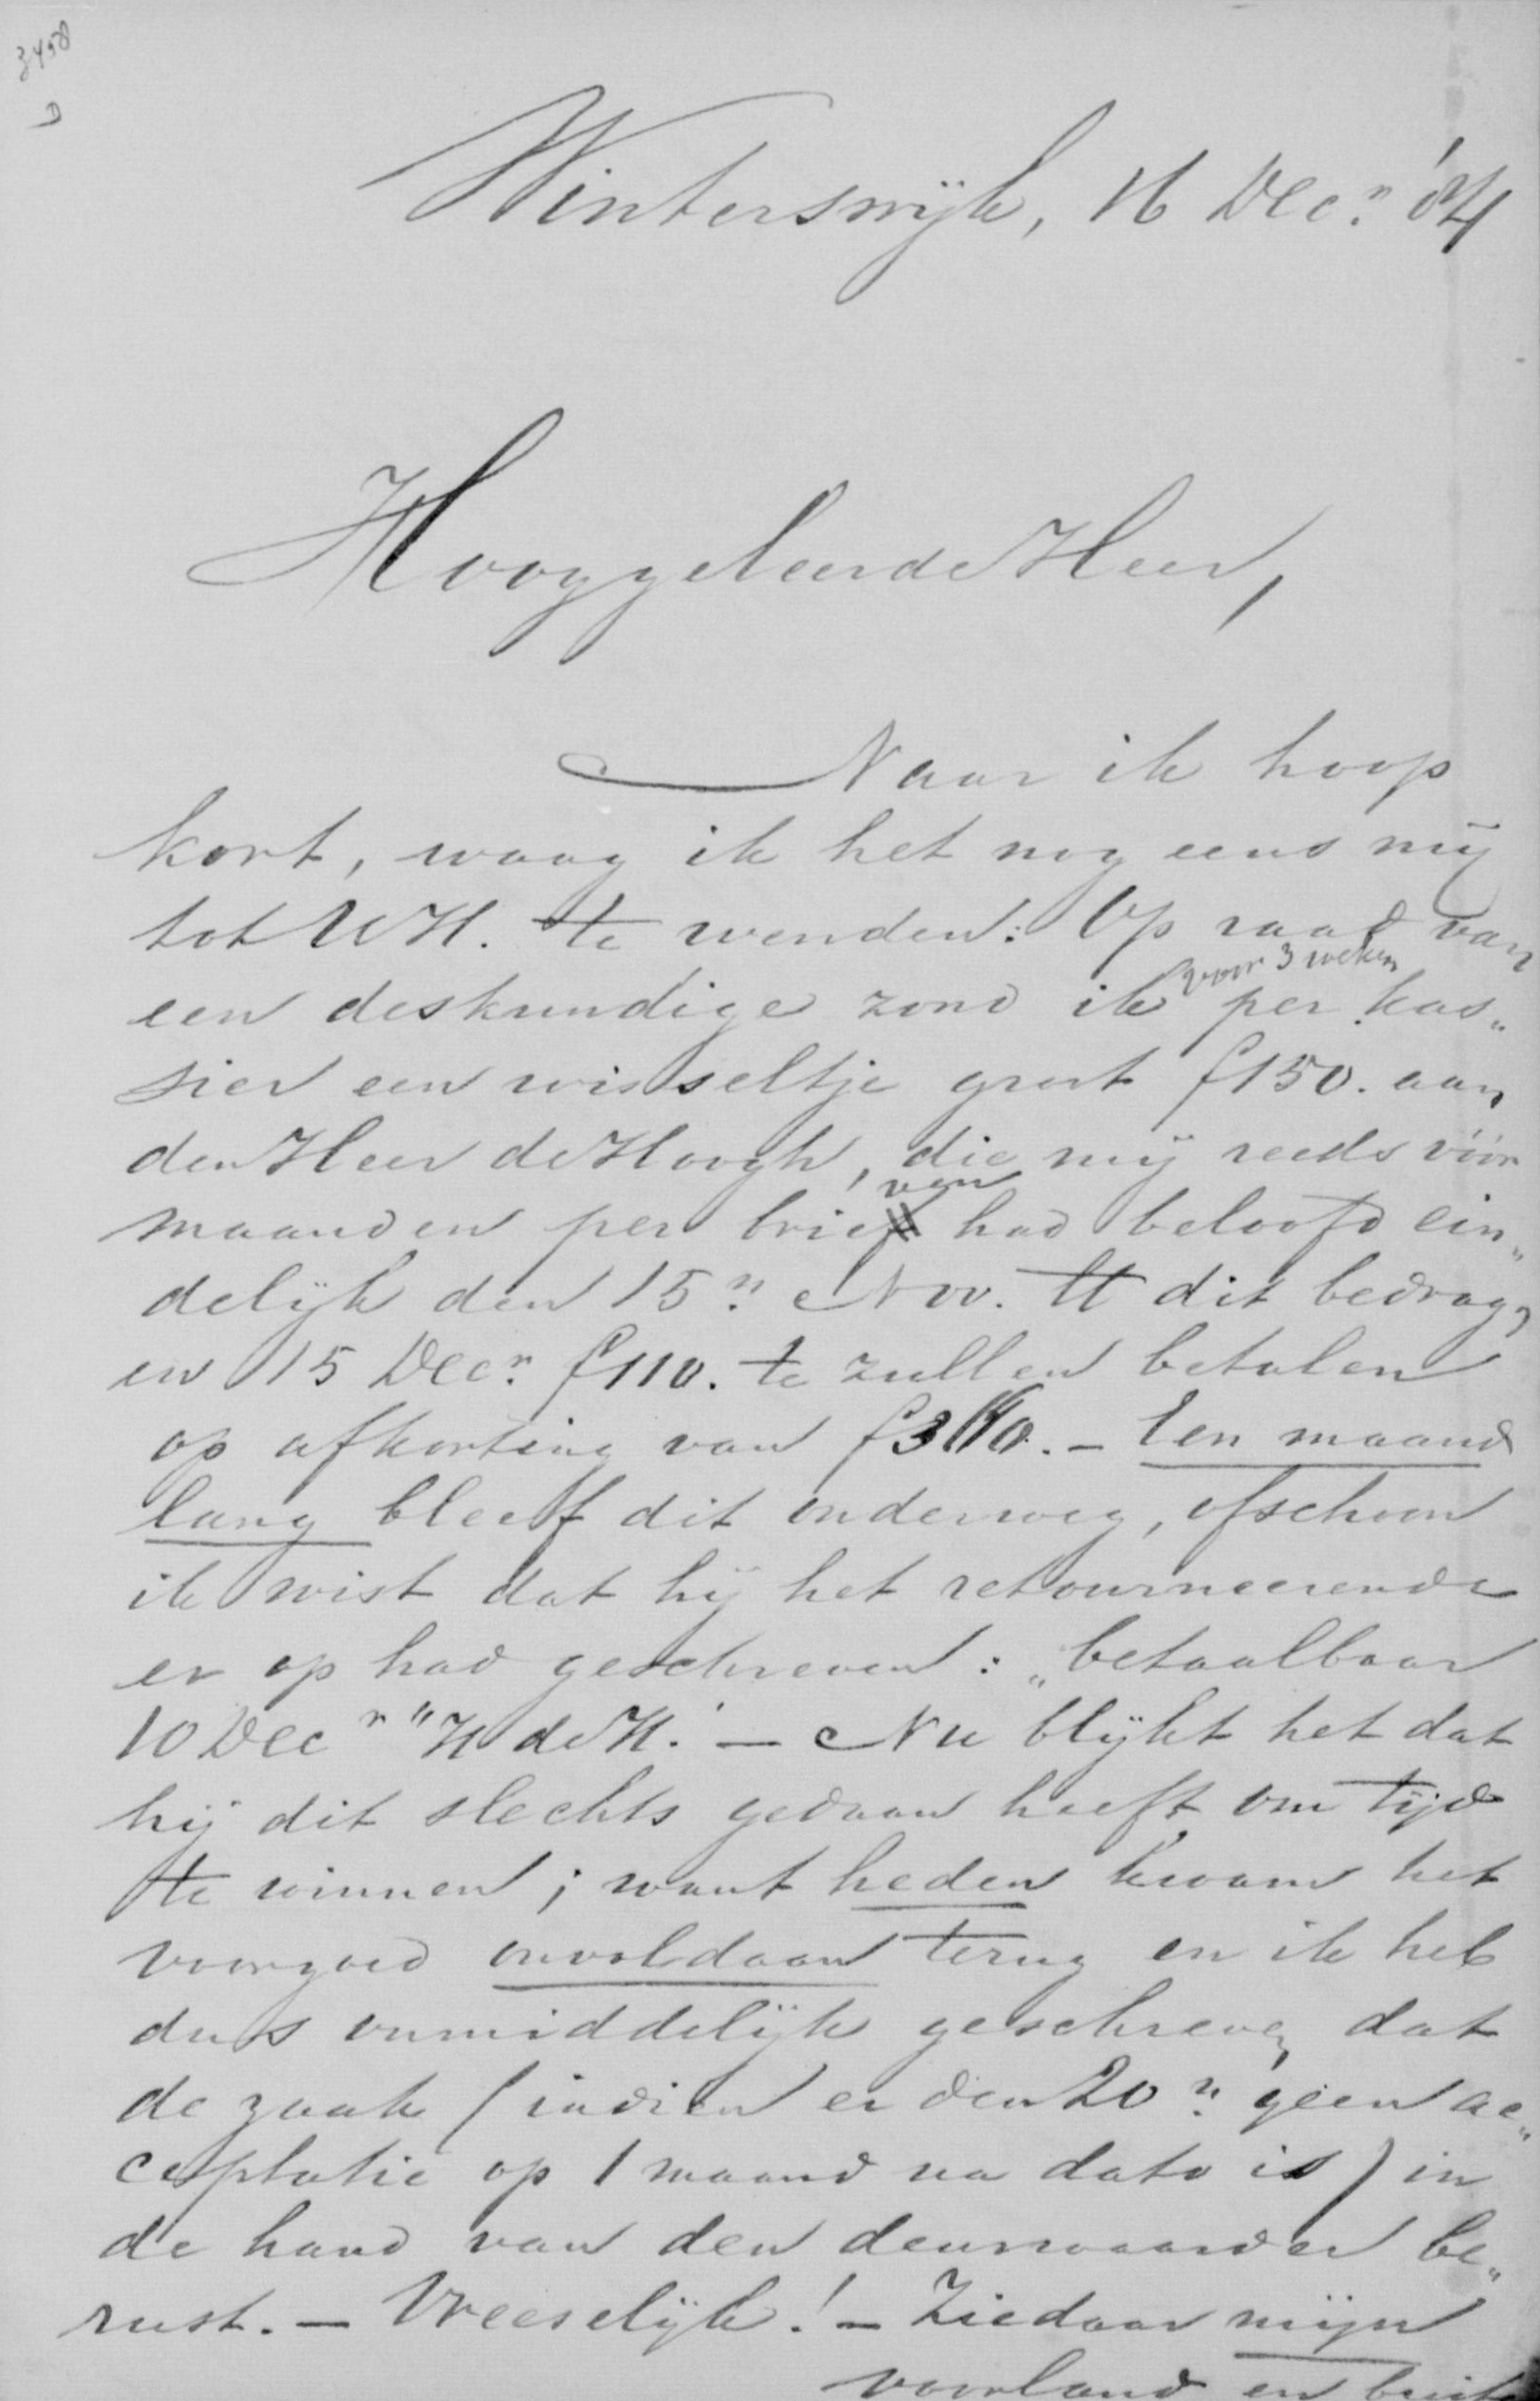 3458
D
Winterswijk, 16 Dec.r '04
Hooggeleerde Heer,
Naar ik hoop
kort, waag ik het nog eens mij
tot UH. te wenden: Op raad van
voor 3 weken
een deskundige zond ik per kas„
sier een wisseltje groot f150. aan
den Heer de Hoogh, die mij reeds vóór
van
maanden per brief had beloofd ein„
delijk den 15n. Nov. tt dit bedrag,
en 15 Decr. f110. te zullen betalen
op afkorting van f3 . – Een maand
lang bleef dit onderweg, ofschoon
ik wist dat hij het retourneerende
er op had geschreven: „betaalbaar
10 Decr" H de H. – Nu blijkt het dat
hij dit slechts gedaan heeft om tijd
te winnen; want heden kwam het
voorgoed onvoldaan terug en ik heb
dus onmiddelijk geschreven dat
de zaak (indien er den 20n. geen ac„
ceptatie op 1 maand na dato is) in
de hand van den deurwaarder be„
rust. – Vreeselijk! – Ziedaar mijn
voorland en